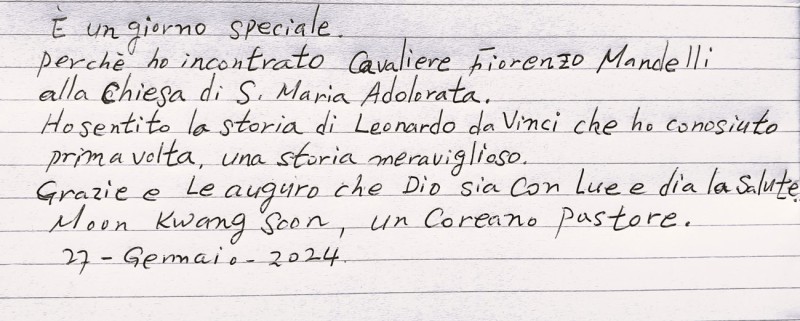 È un giorno speciale.
perchè ho incontrato Cavaliere Fiorenzo Mandelli
alla Chiesa di S. Maria Adolorata.
Ho sentito la storia di Leonardo da Vinci che ho conosiuto
prima volta, una storia meraviglioso.
Grazie e Le auguro che Dio sia con Lue e dia la Salute.
Moon Kwang Soon, un Coreano pastore.
27 - Gennaio - 2024.